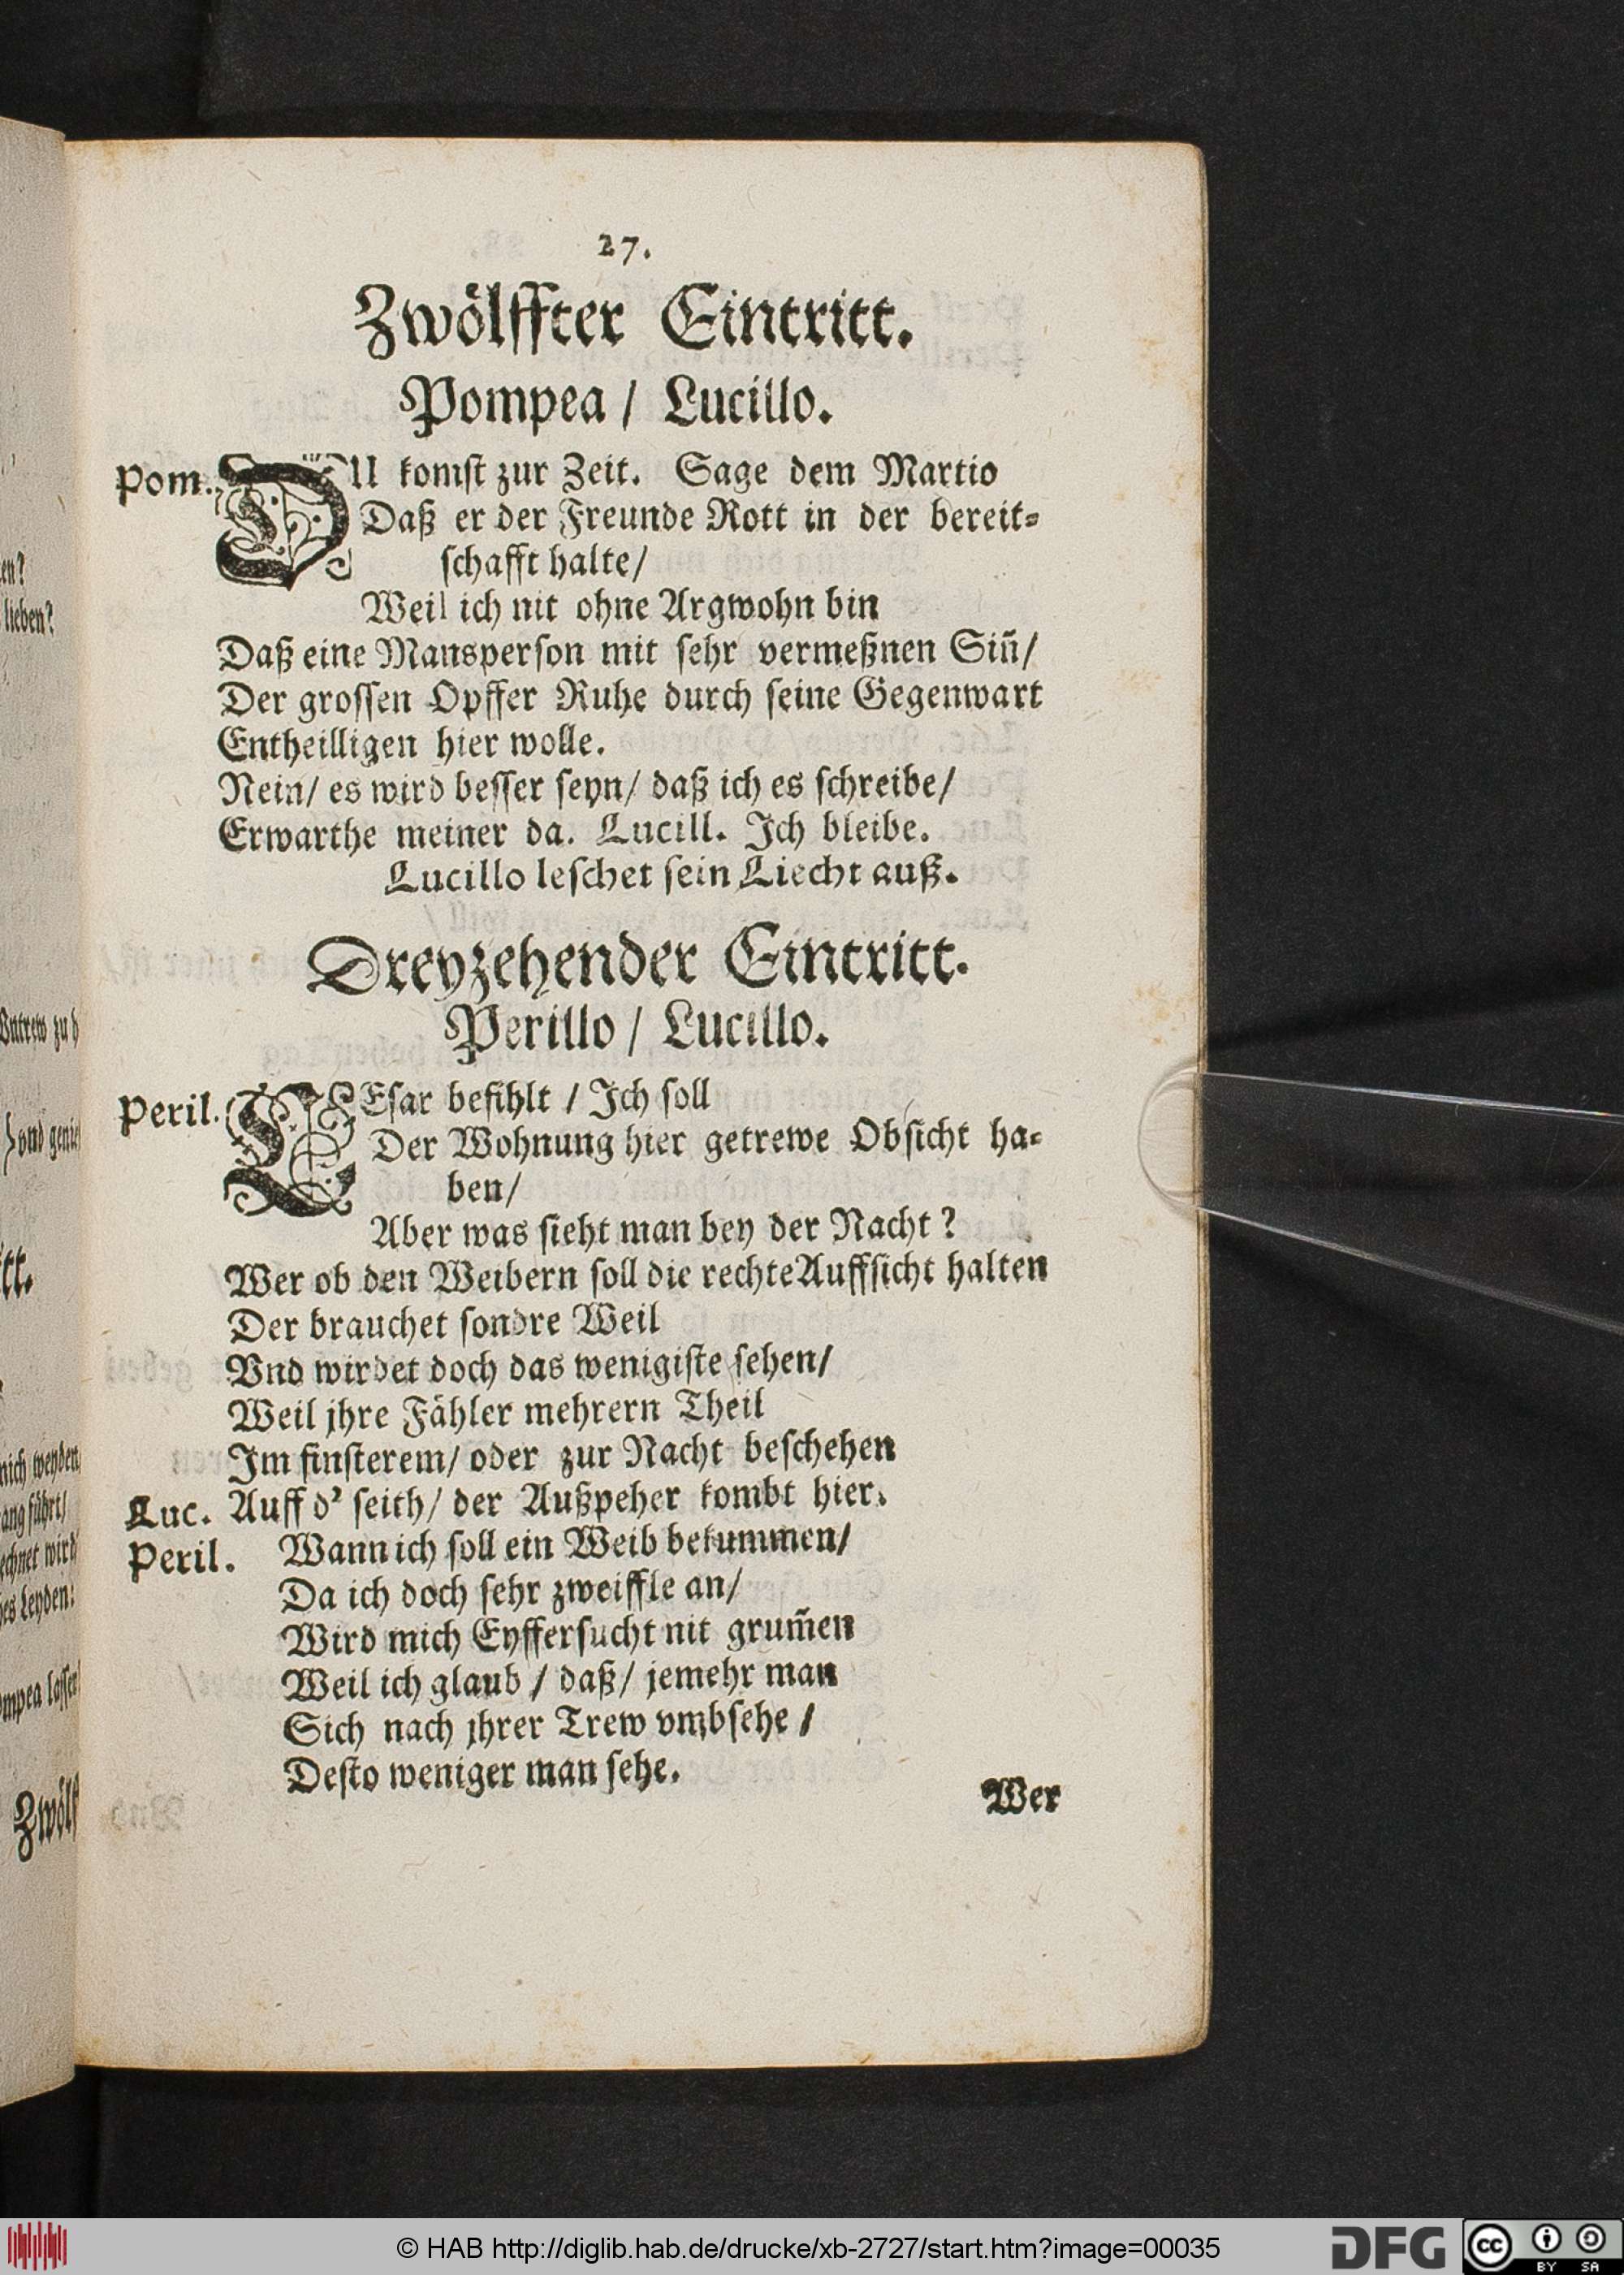 27.
Zwölffter Eintritt.
Pompea / Lucillo.
Pom. DU komſt zur Zeit. Sage dem Martio
Daß er der Freunde Rott in der bereit⸗
ſchafft halte/
Weil ich nit ohne Argwohn bin
Daß eine Mansperſon mit ſehr vermeßnen Siñ/
Der groſſen Opffer Ruhe durch ſeine Gegenwart
Entheilligen hier wolle.
Nein/ es wird beſſer ſeyn/ daß ich es ſchreibe/
Erwarthe meiner da. Lucill. Ich bleibe.
Lucillo leſchet ſein Liecht auß.
Dreyzehender Eintritt.
Perillo / Lucillo.
Peril. CEſar befihlt / Ich ſoll
Der Wohnung hier getrewe Obſicht ha⸗
ben/
Aber was ſieht man bey der Nacht ?
Wer ob den Weibern ſoll die rechte Auffſicht halten
Der brauchet ſondre Weil
Vnd wirdet doch das wenigiſte ſehen/
Weil jhre Fähler mehrern Theil
Im finſterem/ oder zur Nacht beſchehen
Luc. Auff dꝛ ſeith/ der Außpeher kombt hier.
Peril. Wann ich ſoll ein Weib bekummen/
Da ich doch ſehr zweiffle an/
Wird mich Eyfferſucht nit grum̃en
Weil ich glaub / daß/ jemehr man
Sich nach jhrer Trew vmbſehe /
Deſto weniger man ſehe.
Wer
en?
lieben?
Zwölf
© HAB http://diglib.hab.de/drucke/xb-2727/start.htm?image=00035
DFG
cc
BY SA